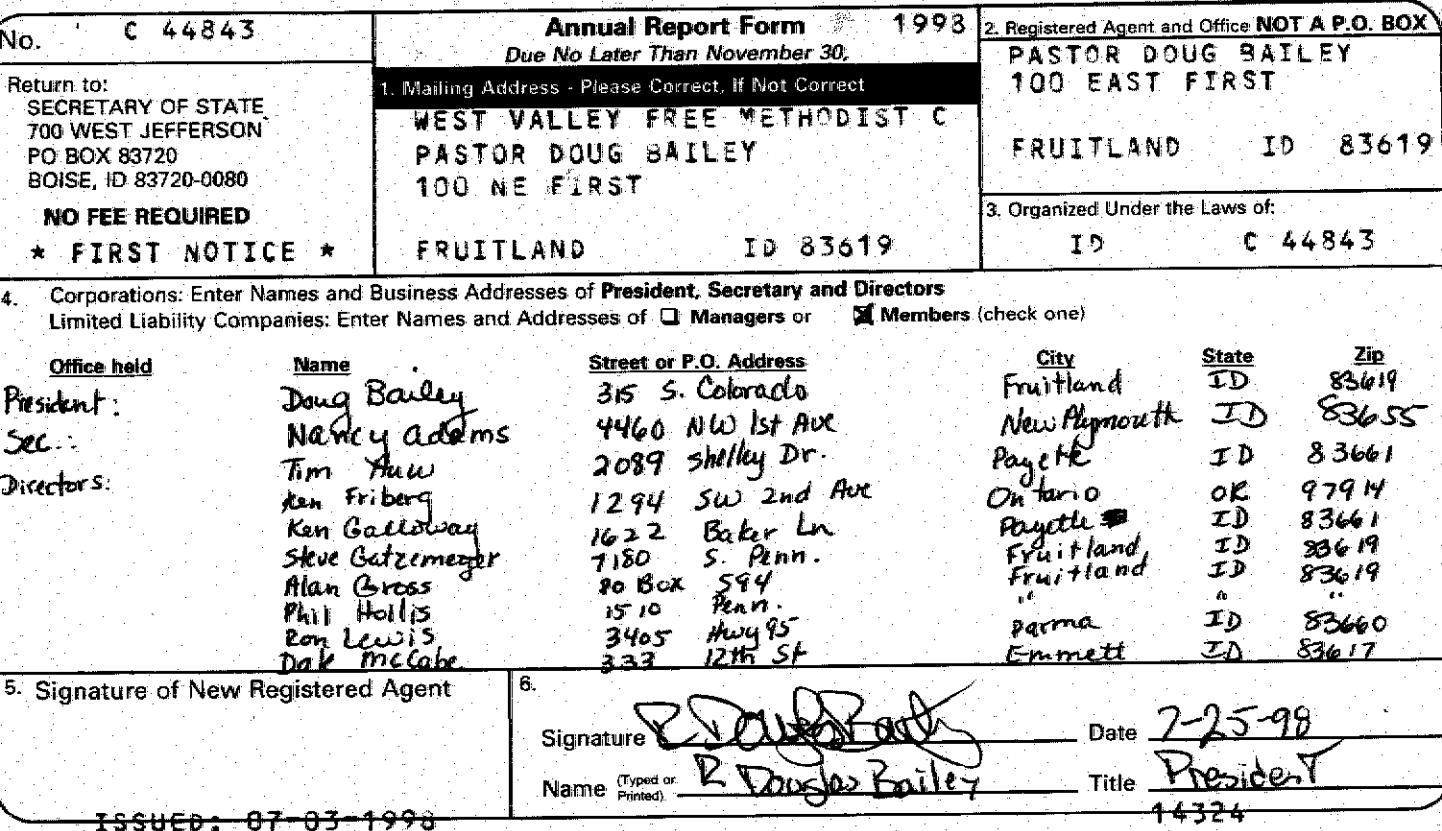 No. C 44843
Return to:
SECRETARY OF STATE
700 WEST JEFFERSON
PO BOX 83720
BOISE, ID 83720-0080
NO FEE REQUIRED
* FIRST NOTICE *
Annual Report Form 1998
Due No Later Than November 30,
1. Mailing Address - Please Correct, If Not Correct
WEST VALLEY FREE METHODIST C
PASTOR DOUG BAILEY
100 NE FIRST
FRUITLAND ID 83619
2. Registered Agent and Office NOT A P.O. BOX
PASTOR DOUG BAILEY
100 EAST FIRST
FRUITLAND ID 83619
3. Organized Under the Laws of:
ID C 44843
4. Corporations: Enter Names and Business Addresses of President, Secretary and Directors
Limited Liability Companies: Enter Names and Addresses of ☐ Managers or ☒ Members (check one)
Office held Name Street or P.O. Address City State Zip
President: Doug Bailey 315 S. Colorado Fruitland ID 83619
Sec.: Nancy Adams 4460 NW 1st Ave New Plymouth ID 83655
Directors: Tim 2089 Shelley Dr. Payette ID 83661
Ken Friberg 1294 SW 2nd Ave Ontario OR 97914
Ken Galloway 1622 Baker Ln Payette ID 83661
Steve Gatzemeyer 7180 S. Penn. Fruitland, ID 83619
Alan Gross PO Box 594 Fruitland ID 83619
Phil Hollis 1510 Penn. " " "
Ron Lewis 3405 Hwy 95 Parma ID 83660
Dale McCabe 333 12th St Emmett ID 83617
5. Signature of New Registered Agent
6.
Signature R Douglas Bailey Date 7-25-98
Name (Typed or Printed) R Douglas Bailey Title President
ISSUED: 07-03-1998 14324